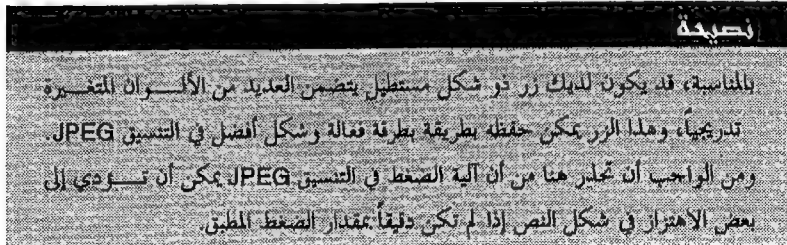 نصيحة
بالمناسبة، قد يكون لديك زر ذو شكل مستطيل يتضمن العديد من الألوان المتغيرة
تدريجياً، وهذا الزر يمكن حفظه بطريقة بطرقة فعالة وشكل أفضل في التنسيق JPEG.
ومن الواجب أن تحذر هنا من أن آلية الضغط في التنسيق JPEG يمكن أن تؤدي إلى
بعض الاهتزاز في شكل النص إذا لم تكن دقيقاً بمقدار الضغط المطبق.